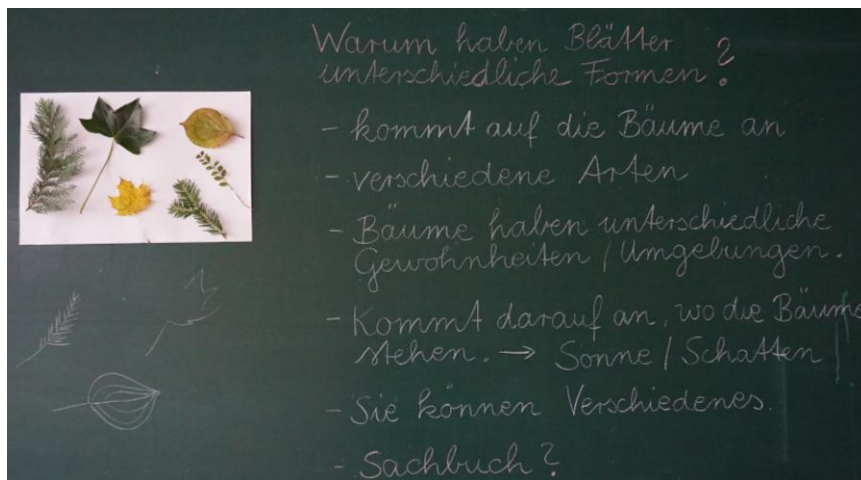 Warum haben Blätter
unterschiedliche Formen?
- kommt auf die Bäume an
- verschiedene Arten
- Bäume haben unterschiedliche
Gewohnheiten / Umgebungen.
- Kommt darauf an, wo die Bäume
stehen. → Sonne / Schatten
- Sie können Verschiedenes.
- Sachbuch?